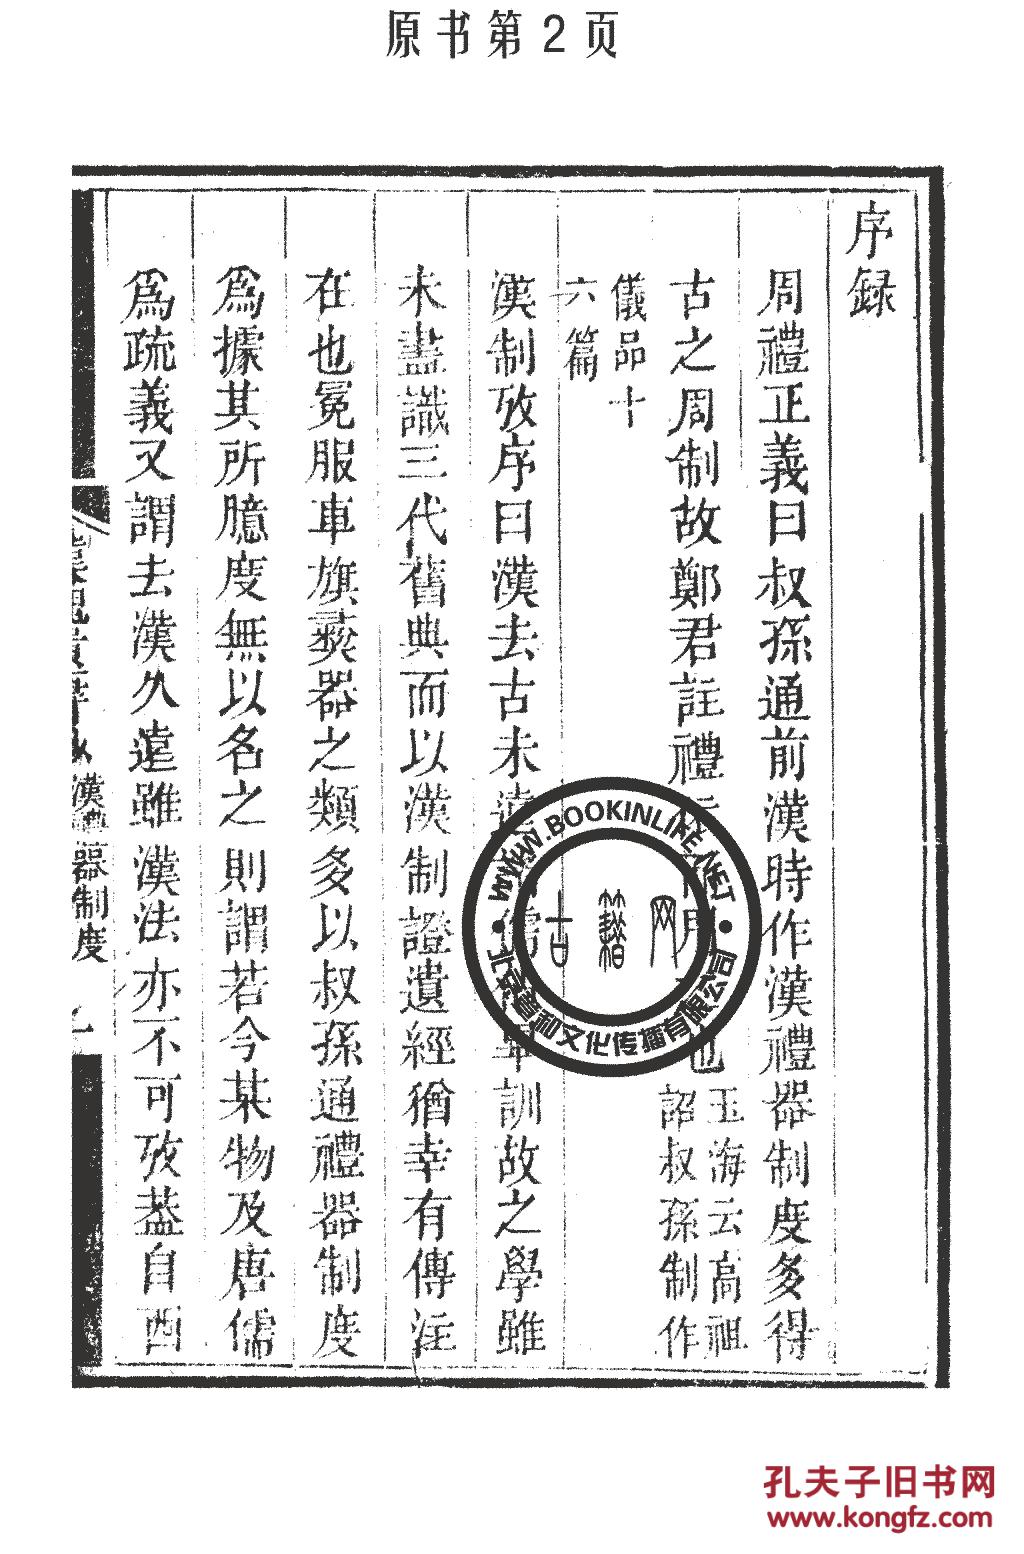 原书第2页
序録
周禮正義曰叔孫通前漢時作漢禮器制度多得
古之周制故鄭君註禮
也
玉海云高祖
詔叔孫制作
儀品十
六篇
漢制攷序曰漢去古未遠
訓故之學雖
未盡識三代舊典而以漢制證遺經猶幸有傳注
在也冕服車旗彛器之類多以叔孫通禮器制度
爲據其所臆度無以名之則謂若今某物及唐儒
爲疏義又謂去漢久遠雖漢法亦不可攷葢自西
漢禮器制度
WWW.BOOKINLIFE.NET
古籍网
北京着和文化传播有限公司
孔夫子旧书网
www.kongfz.com